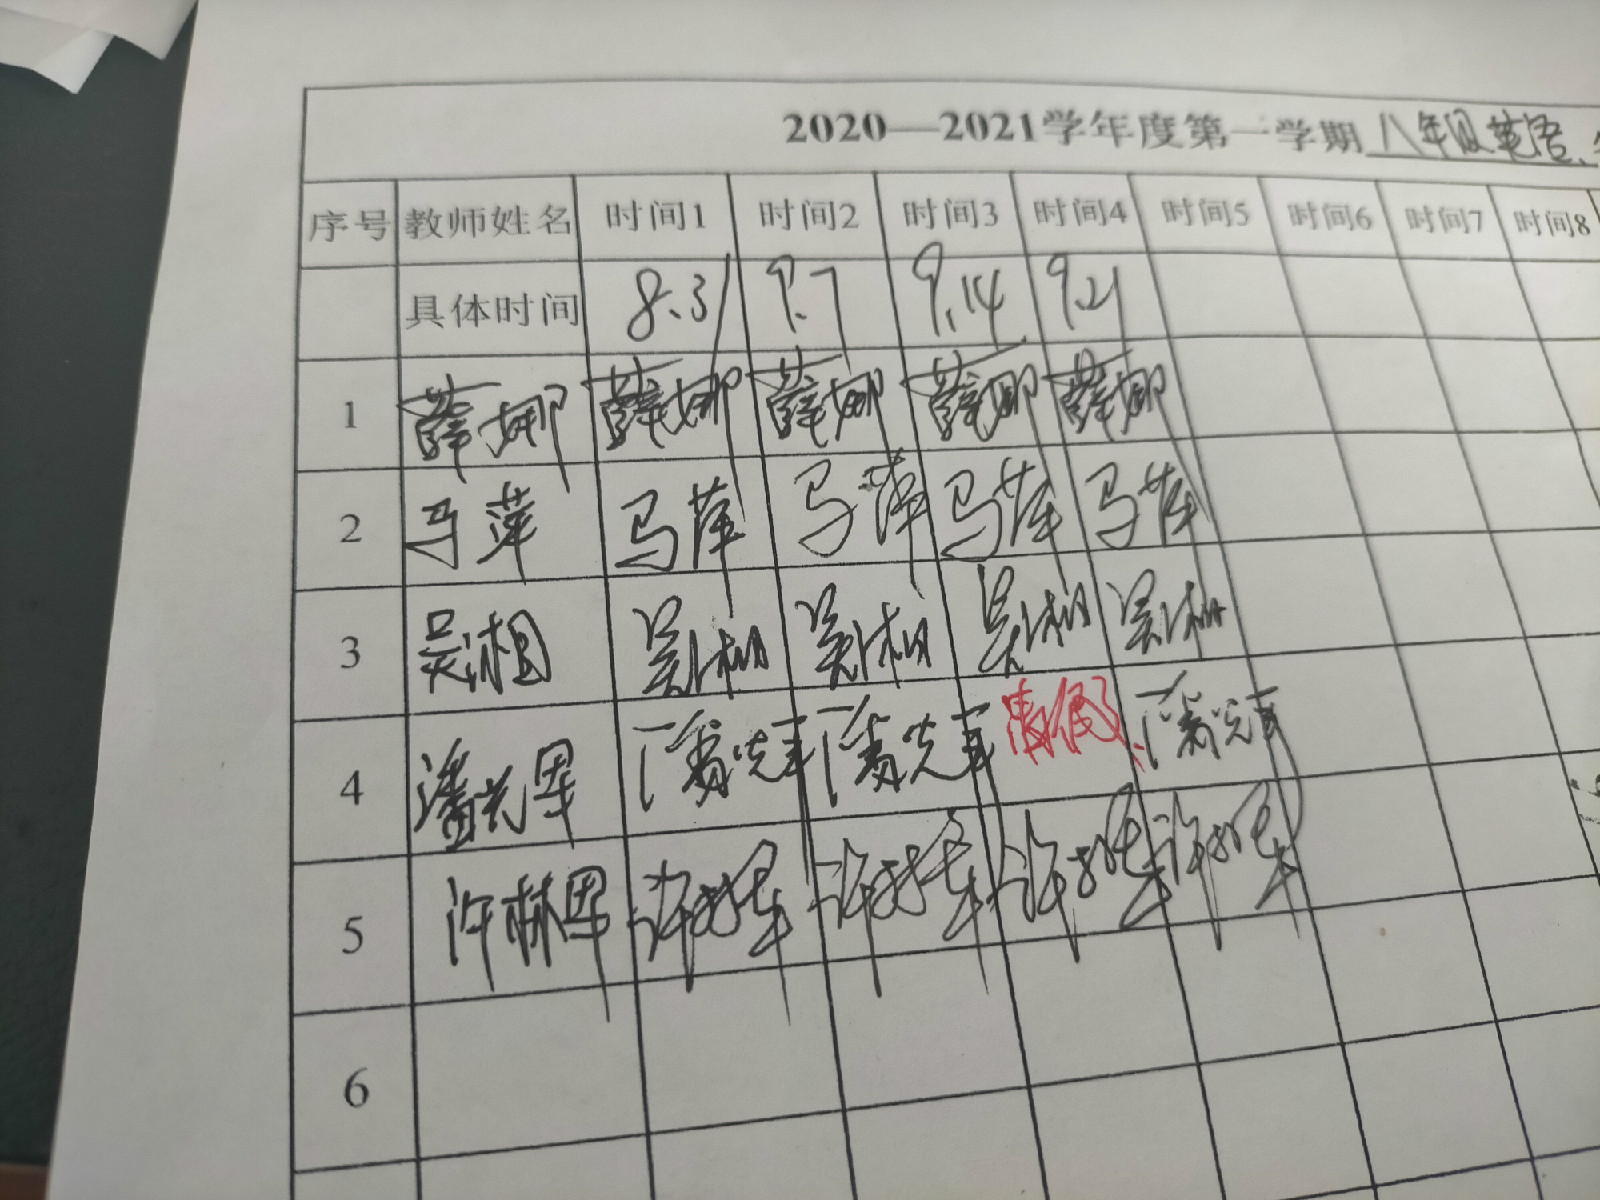 2020—2021学年度第一学期八年级英语
序号 教师姓名 时间1 时间2 时间3 时间4 时间5 时间6 时间7 时间8
具体时间 8.31 9.7 9.14 9.21
1 薛娜 薛娜 薛娜 薛娜 薛娜
2 马萍 马萍 马萍 马萍 马萍
3 吴湘 吴湘 吴湘 吴湘 吴湘
4 潘 潘 潘 请假 潘
5 许林军 许林军 许林军 许林军 许林军
6